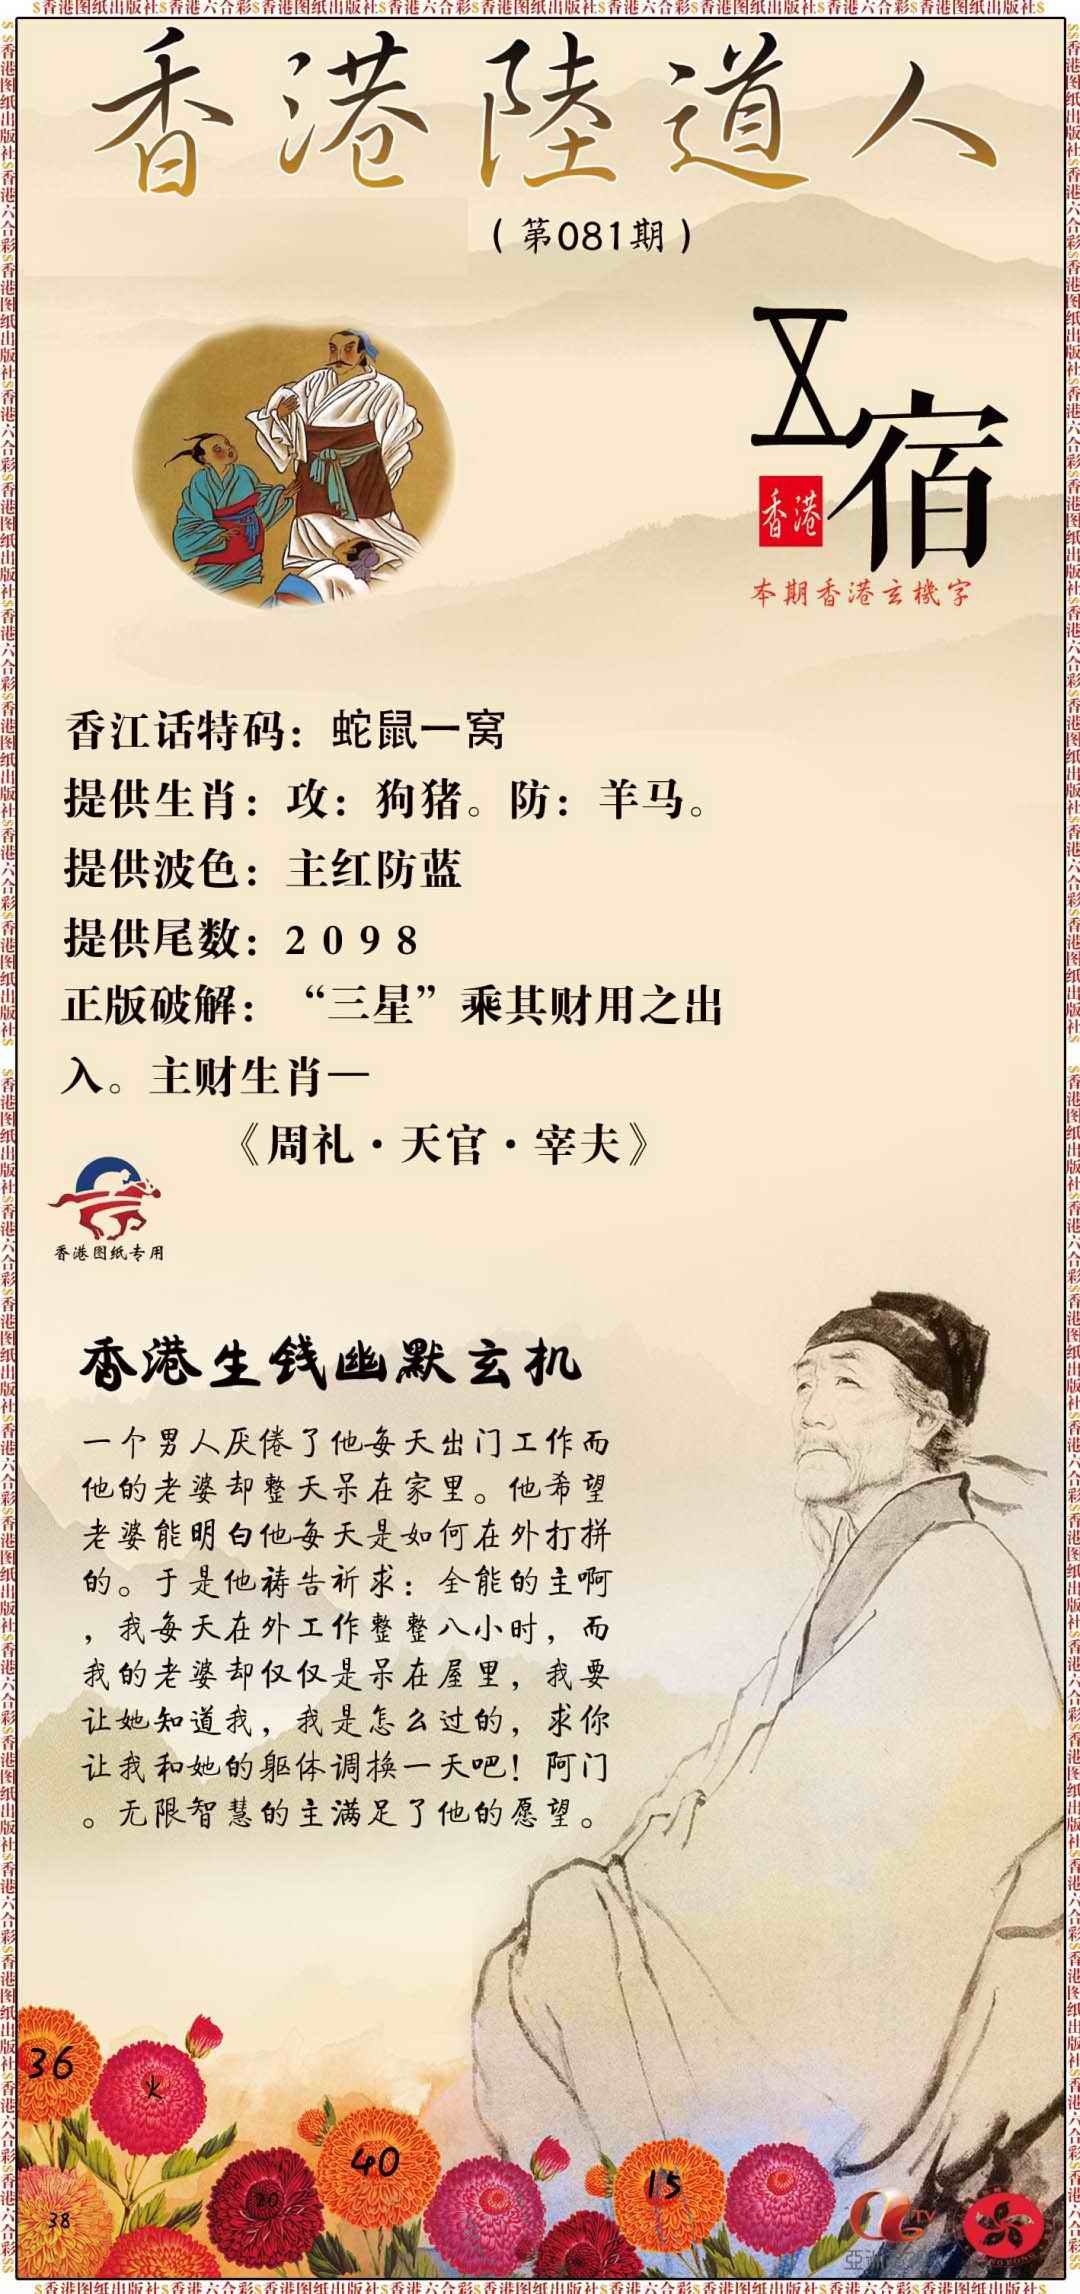 $香港图纸出版社$香港六合彩$香港图纸出版社$香港六合彩$香港图纸出版社$香港六合彩$香港图纸出版社$
香港陸道人
（第081期）
宿
香港
本期香港玄機字
香江话特码：蛇鼠一窝
提供生肖：攻：狗猪。防：羊马。
提供波色：主红防蓝
提供尾数：2 0 9 8
正版破解：“三星”乘其财用之出
入。主财生肖—
《周礼·天官·宰夫》
香港图纸专用
香港生钱幽默玄机
一个男人厌倦了他每天出门工作而
他的老婆却整天呆在家里。他希望
老婆能明白他每天是如何在外打拼
的。于是他祷告祈求：全能的主啊
，我每天在外工作整整八小时，而
我的老婆却仅仅是呆在屋里，我要
让她知道我，我是怎么过的，求你
让我和她的躯体调换一天吧！阿门
。无限智慧的主满足了他的愿望。
36
火
40
15
20
38
TV
$香港图纸出版社$香港六合彩$香港图纸出版社$香港六合彩$香港图纸出版社$香港六合彩$香港图纸出版社$